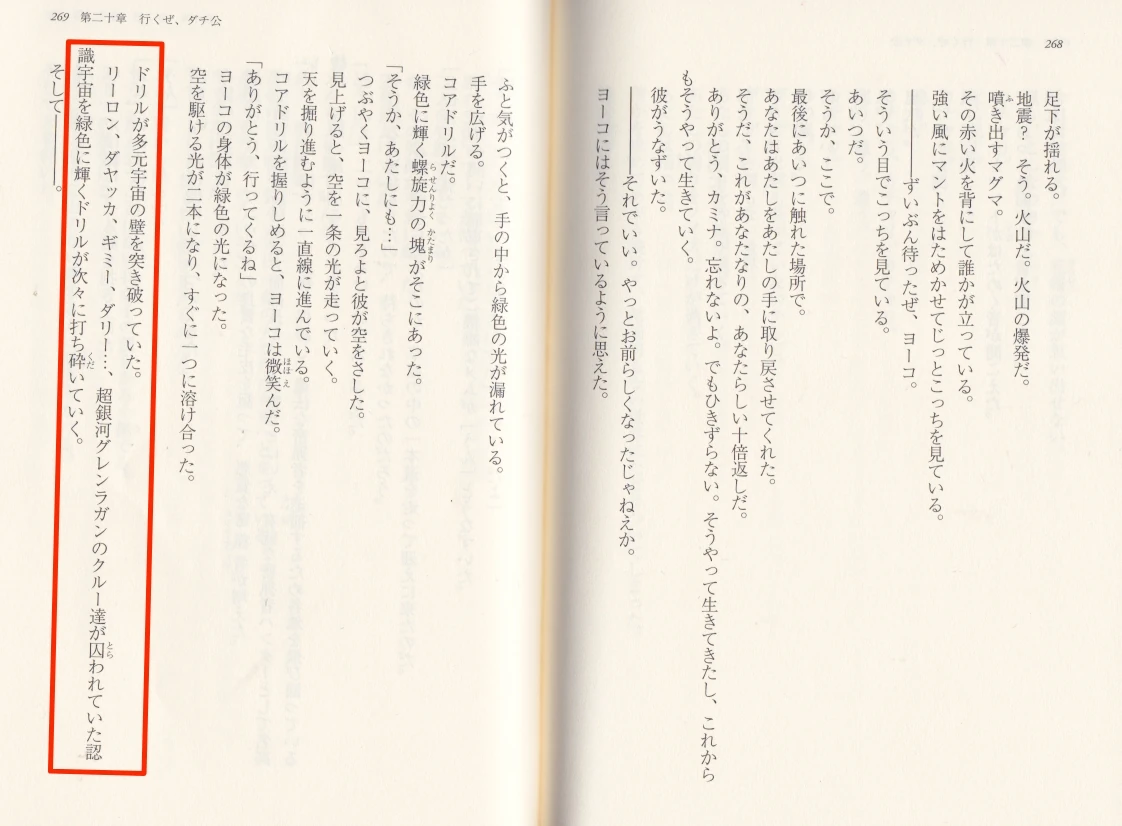 268
足下が揺れる。
地震？　そう。火山だ。火山の爆発だ。
噴き出すマグマ。
ふ
その赤い火を背にして誰かが立っている。
強い風にマントをはためかせてじっとこっちを見ている。
――――ずいぶん待ったぜ、ヨーコ。
そういう目でこっちを見ている。
あいつだ。
そうか、ここで。
最後にあいつに触れた場所で。
あなたはあたしをあたしの手に取り戻させてくれた。
そうだ、これがあなたなりの、あなたらしい十倍返しだ。
ありがとう、カミナ。忘れないよ。でもひきずらない。そうやって生きてきたし、これから
もそうやって生きていく。
彼がうなずいた。
――――それでいい。やっとお前らしくなったじゃねえか。
ヨーコにはそう言っているように思えた。
269 第二十章　行くぜ、ダチ公
ふと気がつくと、手の中から緑色の光が漏れている。
手を広げる。
コアドリルだ。
緑色に輝く螺旋力の塊がそこにあった。
らせんりよく かたまり
「そうか、あたしにも…」
つぶやくヨーコに、見ろよと彼が空をさした。
見上げると、空を一条の光が走っていく。
天を掘り進むように一直線に進んでいる。
コアドリルを握りしめると、ヨーコは微笑んだ。
ほほ え
「ありがとう、行ってくるね」
ヨーコの身体が緑色の光になった。
空を駆ける光が二本になり、すぐに一つに溶け合った。
ドリルが多元宇宙の壁を突き破っていた。
リーロン、ダヤッカ、ギミー、ダリー…、超銀河グレンラガンのクルー達が囚われていた認
とら
識宇宙を緑色に輝くドリルが次々に打ち砕いていく。
くだ
そして――――。